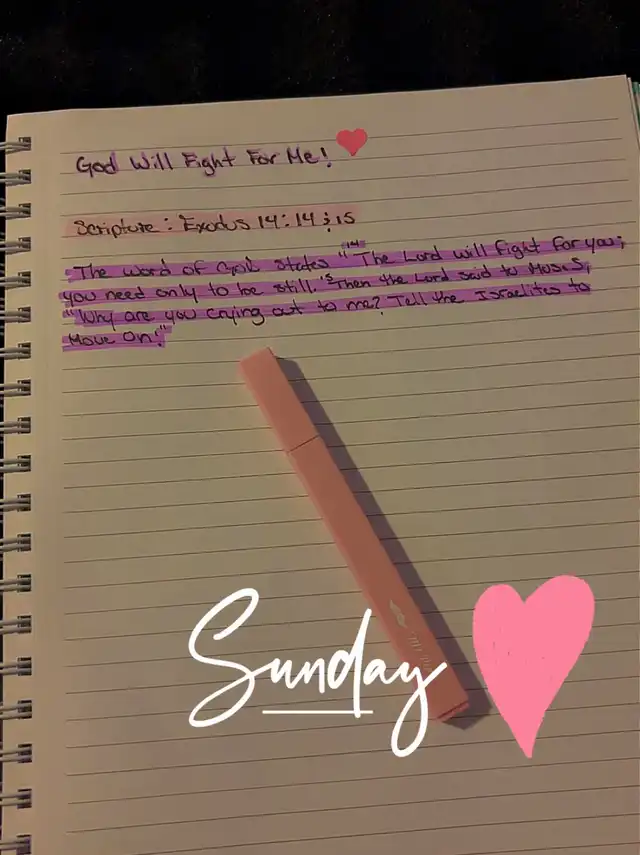 God Will Fight For Me!
Scripture: Exodus 14:14 ; 15
The word of God states "¹⁴ The Lord will fight for you;
you need only to be still. ¹⁵ Then the Lord said to Moses,
"Why are you crying out to me? Tell the Israelites to
Move On!"
Sunday